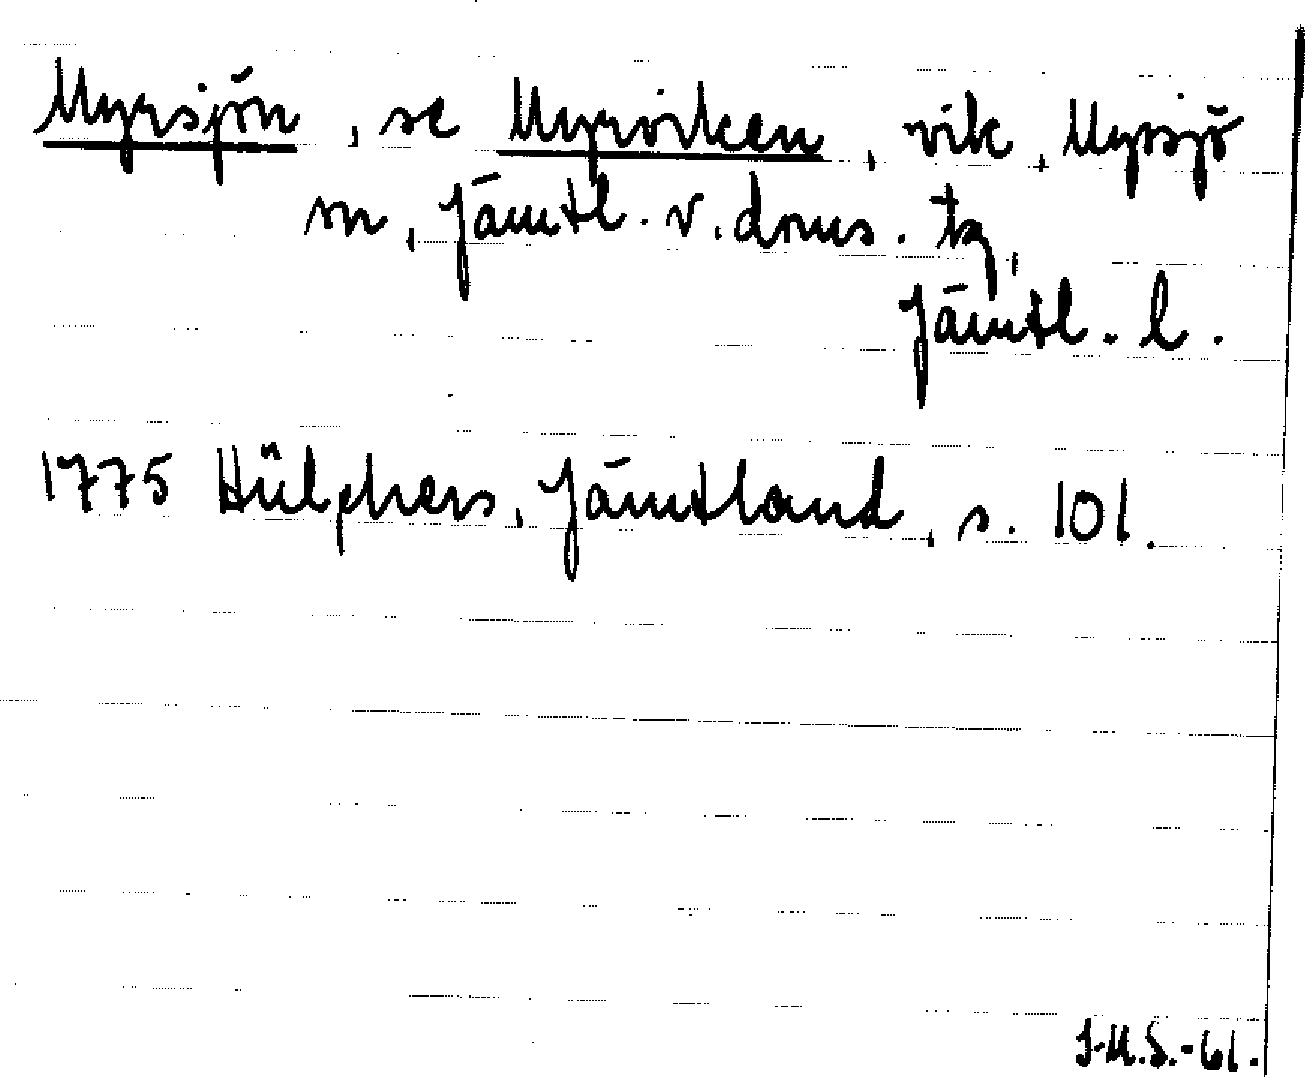 Myrsjön, se Myrviken, vik, Myssjö
sn, Jämtl. v. doms. tg,
Jämtl. l.
1775 Hülphers, Jämtland, s. 101.
J-M.S.-61.